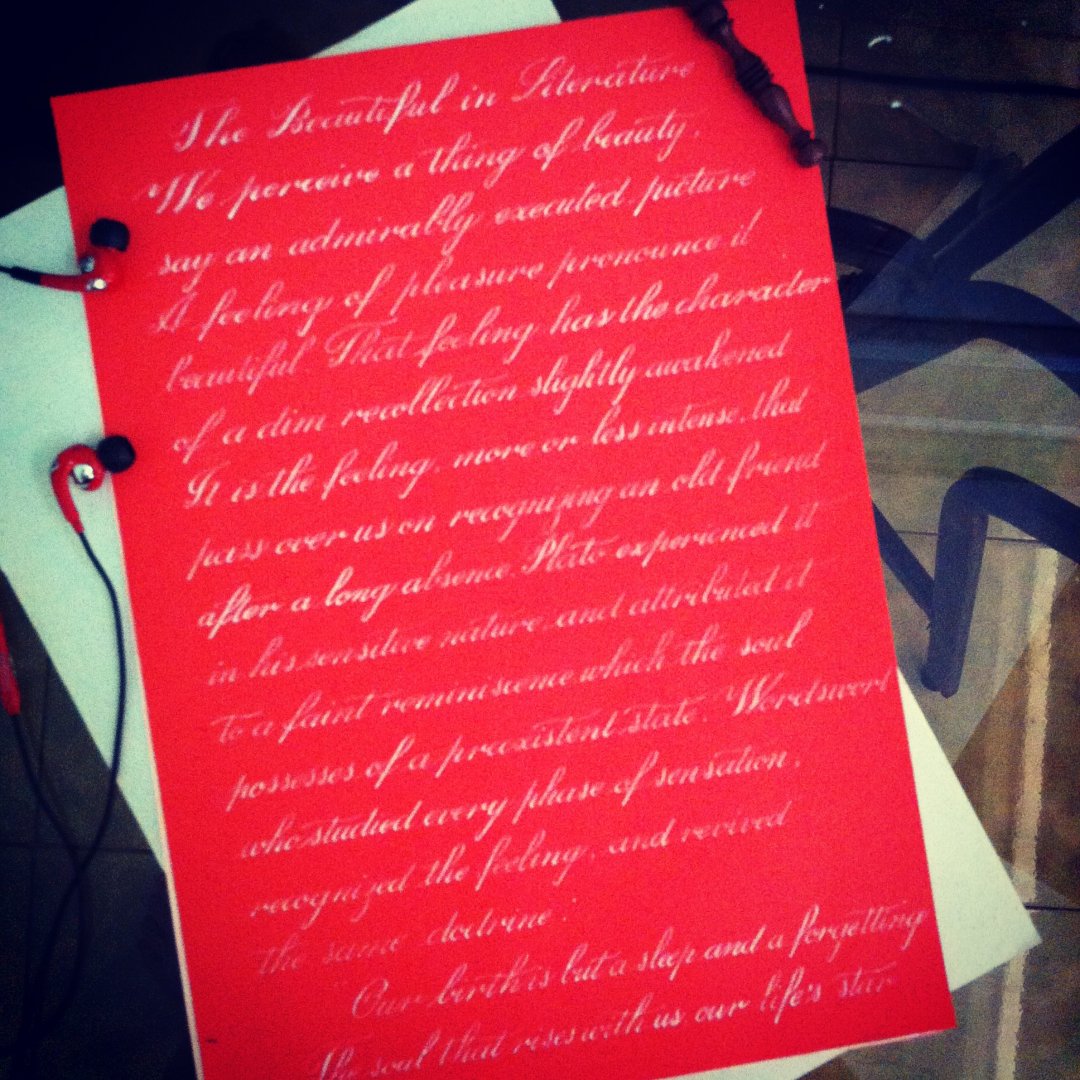 The Beautiful in Literature
We perceive a thing of beauty,
say an admirably executed picture
A feeling of pleasure pronounce it
beautiful That feeling has the character
of a dim recollection slightly awakened
It is the feeling, more or less intense, that
pass over us on recognizing an old friend
after a long absence. Plato experienced it
in his sensitive nature and attributed it
to a faint reminiscence which the soul
possesses of a preexistent state. Wordswort
who studied every phase of sensation,
recognized the feeling, and revived
the same doctrine:
Our birth is but a sleep and a forgetting
The soul that rises with us our life's star